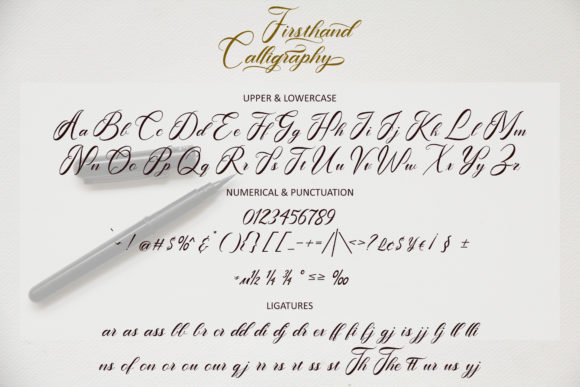 Firsthand
Calligraphy
UPPER & LOWERCASE
Aa Bb Cc Dd Ee Ff Gg Hh Ii Jj Kk Ll Mm
Nn Oo Pp Qq Rr Ss Tt Uu Vv Ww Xx Yy Zz
NUMERICAL & PUNCTUATION
0123456789
` ~ ! @ # $ % ^ & * ( ) { } [ ] _ - + = / | \ < > ? £ ¢ $ ¥ € ƒ § ±
½ ¼ ¾ ° ≤ ≥ ‰
LIGATURES
ar as ass bb br cr dd di dj dr er ff fi fj gj is jj lj ll lli
ns of on or ou our qj rr rs rt ss st Th The tt ur us yj